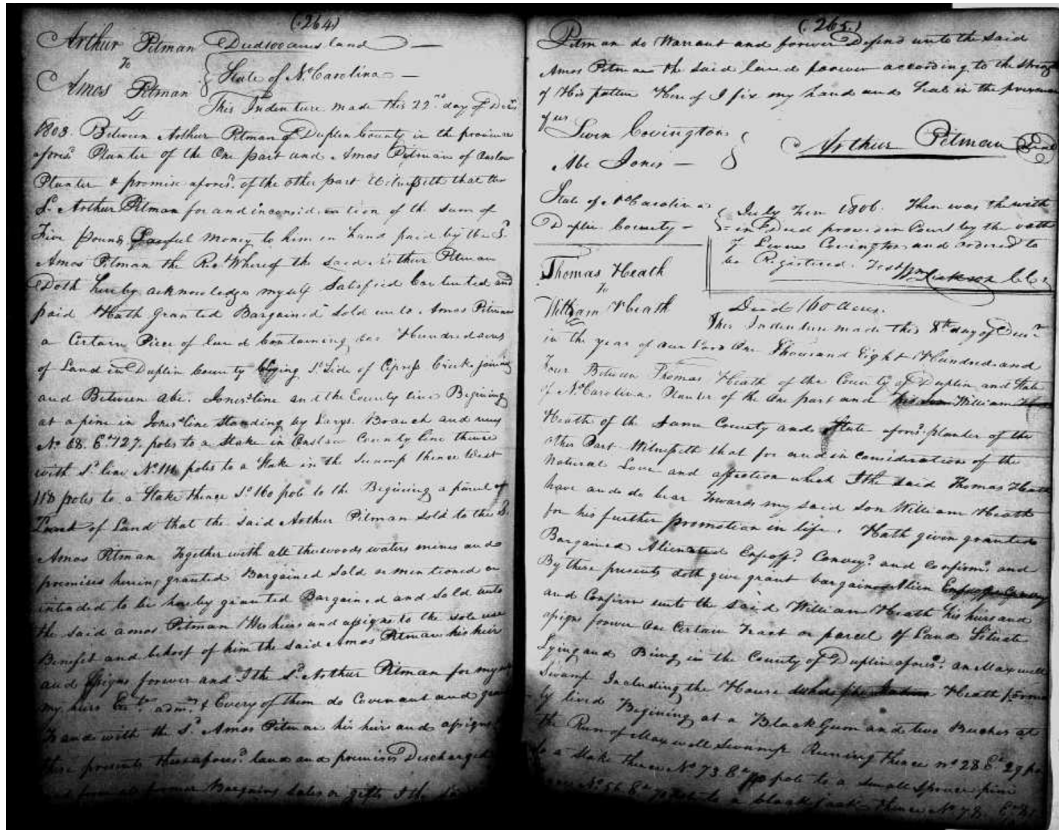 (264)
Arthur Pitman Deed 100 acres land
To
State of No Carolina
Amos Pitman
This Indenture made this 22nd day of Decr
1803. Between Arthur Pitman of Duplin County in the province
aforesd Planter of the One part and Amos Pitman of Onslow
Planter & promise aforesd. of the other part Witnesseth that the
Sd. Arthur Pitman for and in consideration of the sum of
Five pounds Lawful Money to him in hand paid by the Sd.
Amos Pitman the Rect Whereof the said Arthur Pitman
Doth hereby acknowledge myself Satisfied Contented and
paid Hath Granted Bargained Sold unto Amos Pitman
a Certain Piece of land Containing Hundred acres
of Land in Duplin County Lying Sd Side of Cypress Creek joining
and Between Abe. Jones line and the County line Begining
at a pine in Jones line Standing by Branch and runs
No. 68. Et 127. poles to a Stake in Onslow County line thence
with Sd. line No. 111 poles to a Stake in the Swamp thence West
118 poles to a Stake thence So. 160 pole to the Begining a parcel of
Tract of Land that the said Arthur Pitman Sold to the Sd.
Amos Pitman Together with all the woods waters mines and
premises hereing granted Bargained Sold or mentioned or
intended to be hereby granted Bargained and Sold unto
the said Amos Pitman His heirs and assigns to the sole use
Benefit and behoof of him the said Amos Pitman his heirs
and assigns forever and I the Sd. Arthur Pitman for myself
my heirs Exrs. admrs. & Every of them do Covenant and grant
To and with the Sd. Amos Pitman his heir and assigns
these presents the aforesd. land and premises Discharged
and from all former Bargains Sales or gifts I the said
(265)
Pitman do Warrant and forever Defend unto the said
Amos Pitman the said land forever according to the Strength
of His patten Here of I fix my hand and Seal in the presence
of us
Swen Covington
Arthur Pitman Seal
Abe Jones
State of No Carolina
Duplin County
July Term 1806. Then was the with
in Deed proved in Court by the oath
of Swen Covington and ordered to
be Registered. Test Wm Dickson CC
Thomas Heath
To
William Heath
Deed 160 acres.
This Indenture made this 8th day of Decr
in the year of our Lord One Thousand Eight Hundred and
Four Between Thomas Heath of the County of Duplin and State
of No Carolina Planter of the One part and his son William
Heath of the Same County and State aforesd. planter of the
other Part Witnesseth that for and in Consideration of the
Natural Love and affection which I the said Thomas Heath
have and do bear towards my said Son William Heath
for his further promotion in life. Hath given granted
Bargained Alienated Enfeoffd. Conveyd. and Confirmd. and
By these presents doth give grant bargain Alien Convey
and Confirm unto the said William Heath his heirs and
assigns forever One Certain Tract or parcel of Land Situate
Lying and Being in the County of Duplin aforesd. on Maxwell
Swamp Including the House Heath forme
ly lived Begining at a Black Gum and two Bushes at
the Run of Maxwell Swamp Runing thence No 28 Et 29 po
to a Stake thence No. 73 Et pole to a small Spruce pine
No. 56 Et pole to a black Jack thence No. 78. Et